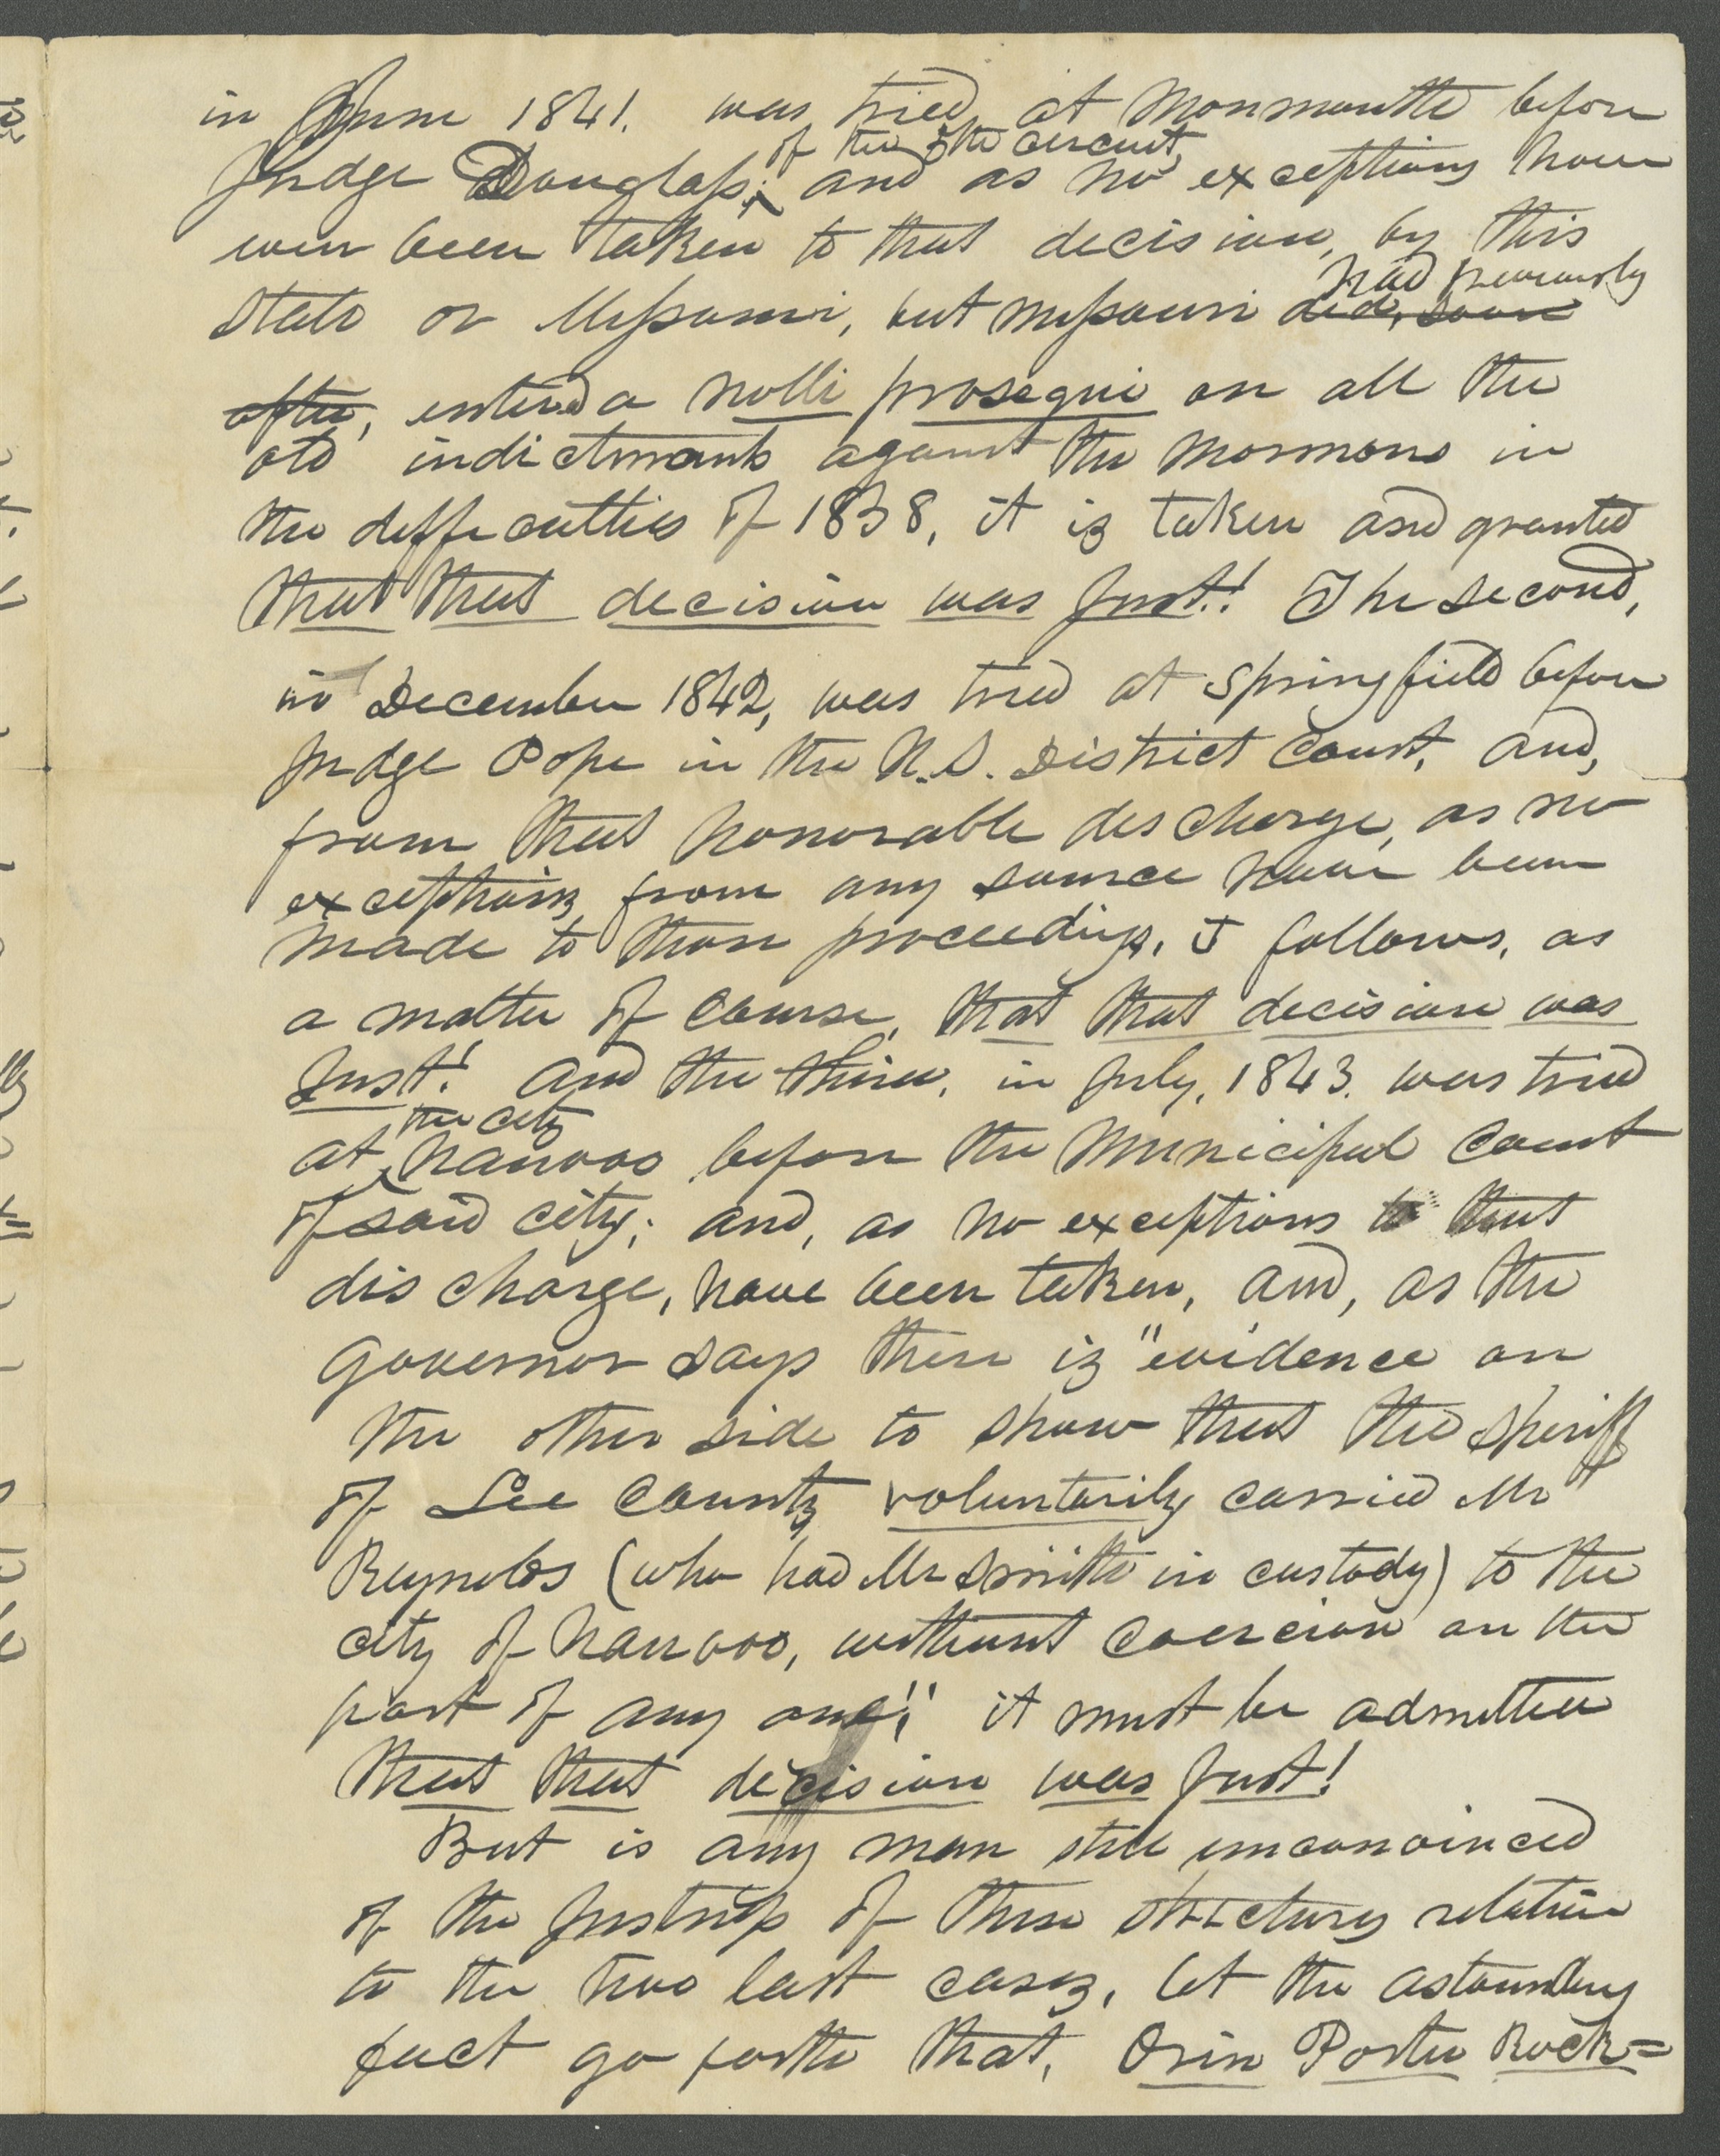 in June 1841. was tried at Monmouth before
of the 5th circuit,
Judge Douglass; and as no exceptions have
ever been taken to that decision, by this
State or Missouri, but Missouri did, soon
had previously
after, entered a nolli prosequi on all the
old indictments against the Mormons in
the difficulties of 1838, it is taken and granted
that that decision was just! The second,
in December 1842, was tried at Springfield before
Judge Pope in the U.S. District Court, and,
from that honorable discharge, as no
exceptions from any source have been
made to those proceedings, it follows, as
a matter of course, that that decision was
just! and the third, in July, 1843. was tried
the city
at Nauvoo before the Municipal Court
of said city; and, as no exceptions to that
discharge, have been taken, and, as the
governor says there is "evidence on
the other side to show that the sheriff
of Lee County voluntarily carried Mr
Reynolds (who had Mr Smith in custody) to the
city of Nauvoo, without coercion on the
part of any one;" it must be admitted
that that decision was just!
But is any man still unconvinced
of the justness of these strictures relative
to the two last cases, let the astounding
fact go forth that, Orin Porter Rock=